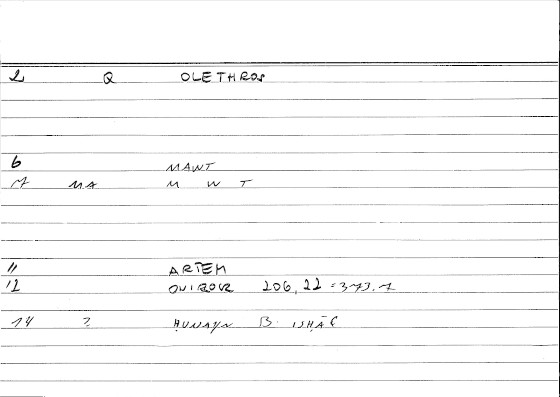 2 Q OLETHROS
6 MAWT
7 MA M W T
11 ARTEM
12 ONIROCR 206, 22 = 373.7
14 ? HUNAYN B. ISHĀC